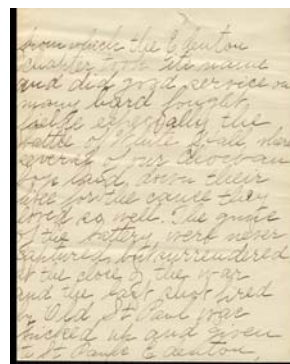 from which the Edenton
Chapter took its name
and did good service on
many hard fought
fields especially the
battle of White Hall, where
several of our Chowan
boys laid, down their
lives for the cause they
loved so well. The guns
of the battery were never
captured, but surrendered
at the close of the war
and the last shot fired
by Old St. Paul was
picked up and given
to St. Pauls Edenton,